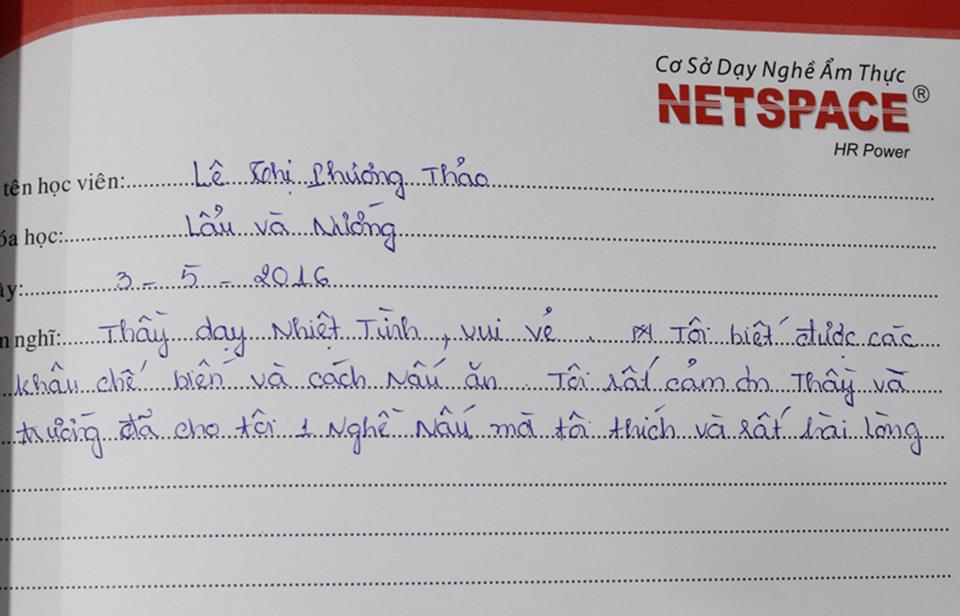 Cơ Sở Dạy Nghề Ẩm Thực
NETSPACE®
HR Power
tên học viên: Lê Thị Phương Thảo
óa học: Lẩu và Nướng
ày: 3 - 5 - 2016
m nghĩ: Thầy dạy Nhiệt Tình, vui vẻ. Tôi biết được các
khâu chế biến và cách Nấu ăn. Tôi rất cảm ơn Thầy và
trường đã cho tôi 1 Nghề Nấu mà tôi thích và rất hài lòng